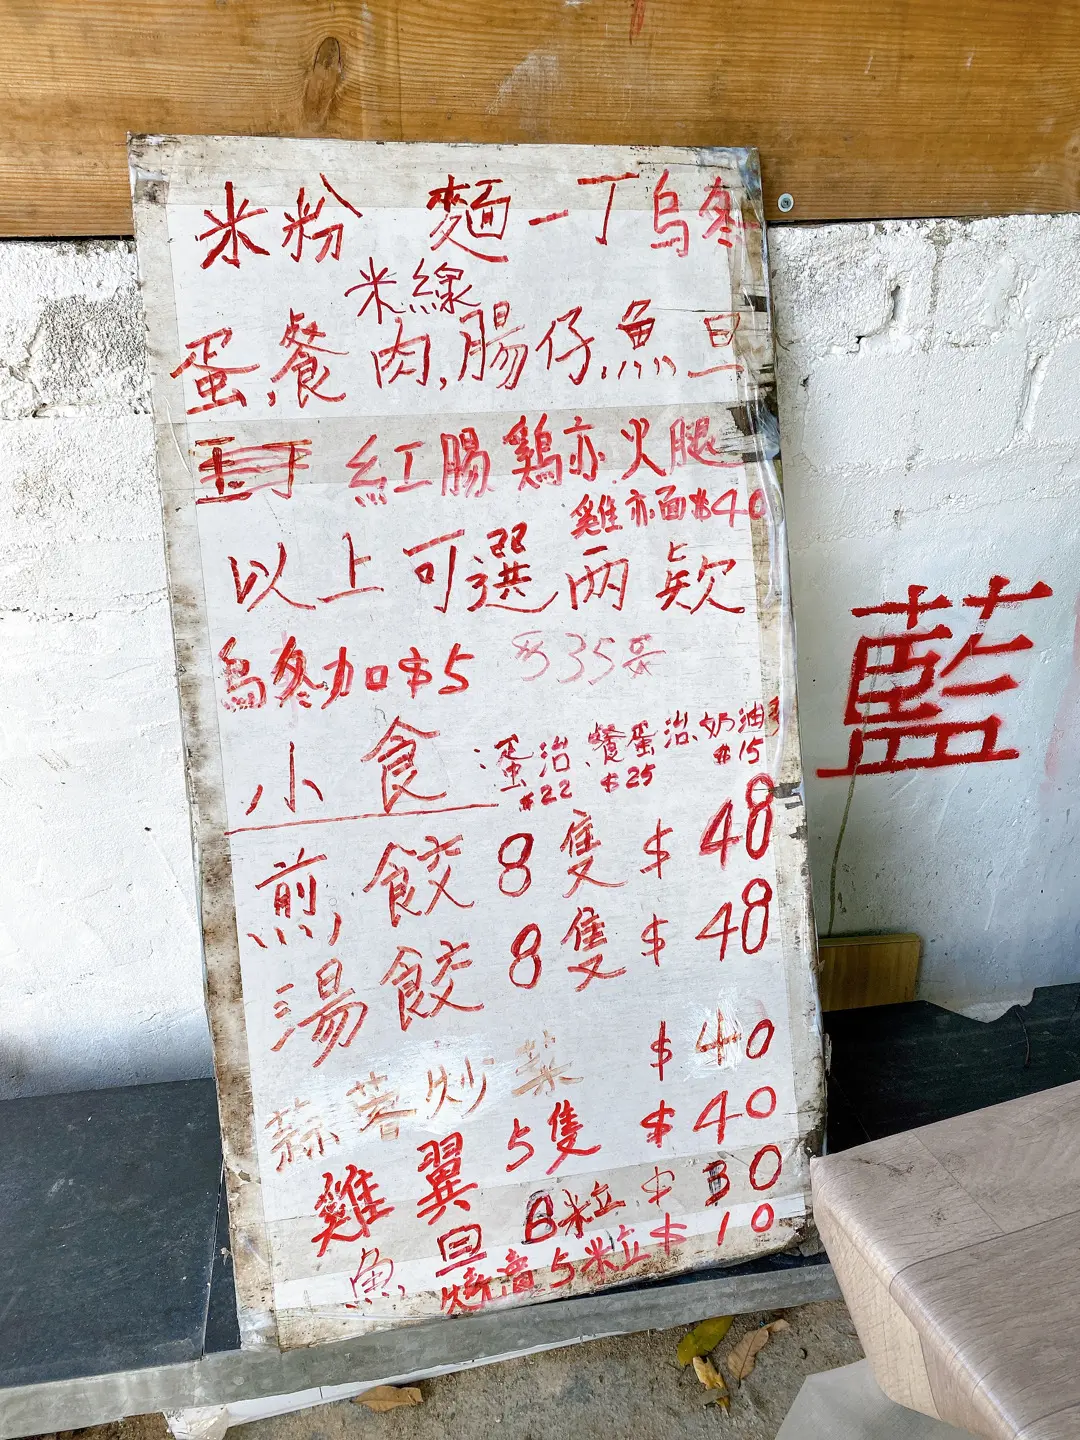 米粉 麵 一丁 烏冬
米線
蛋,餐肉,腸仔,魚旦
紅腸 鷄亦 火腿
雞亦面$40
以上可選兩欵
烏冬加$5
$35
小食
蛋治 餐蛋治 奶油多
$22 $25 $15
煎餃8隻 $48
湯餃8隻 $48
蒜蓉炒菜 $40
雞翼 5隻 $40
魚旦 8粒 $30
燒賣5粒 $10
藍